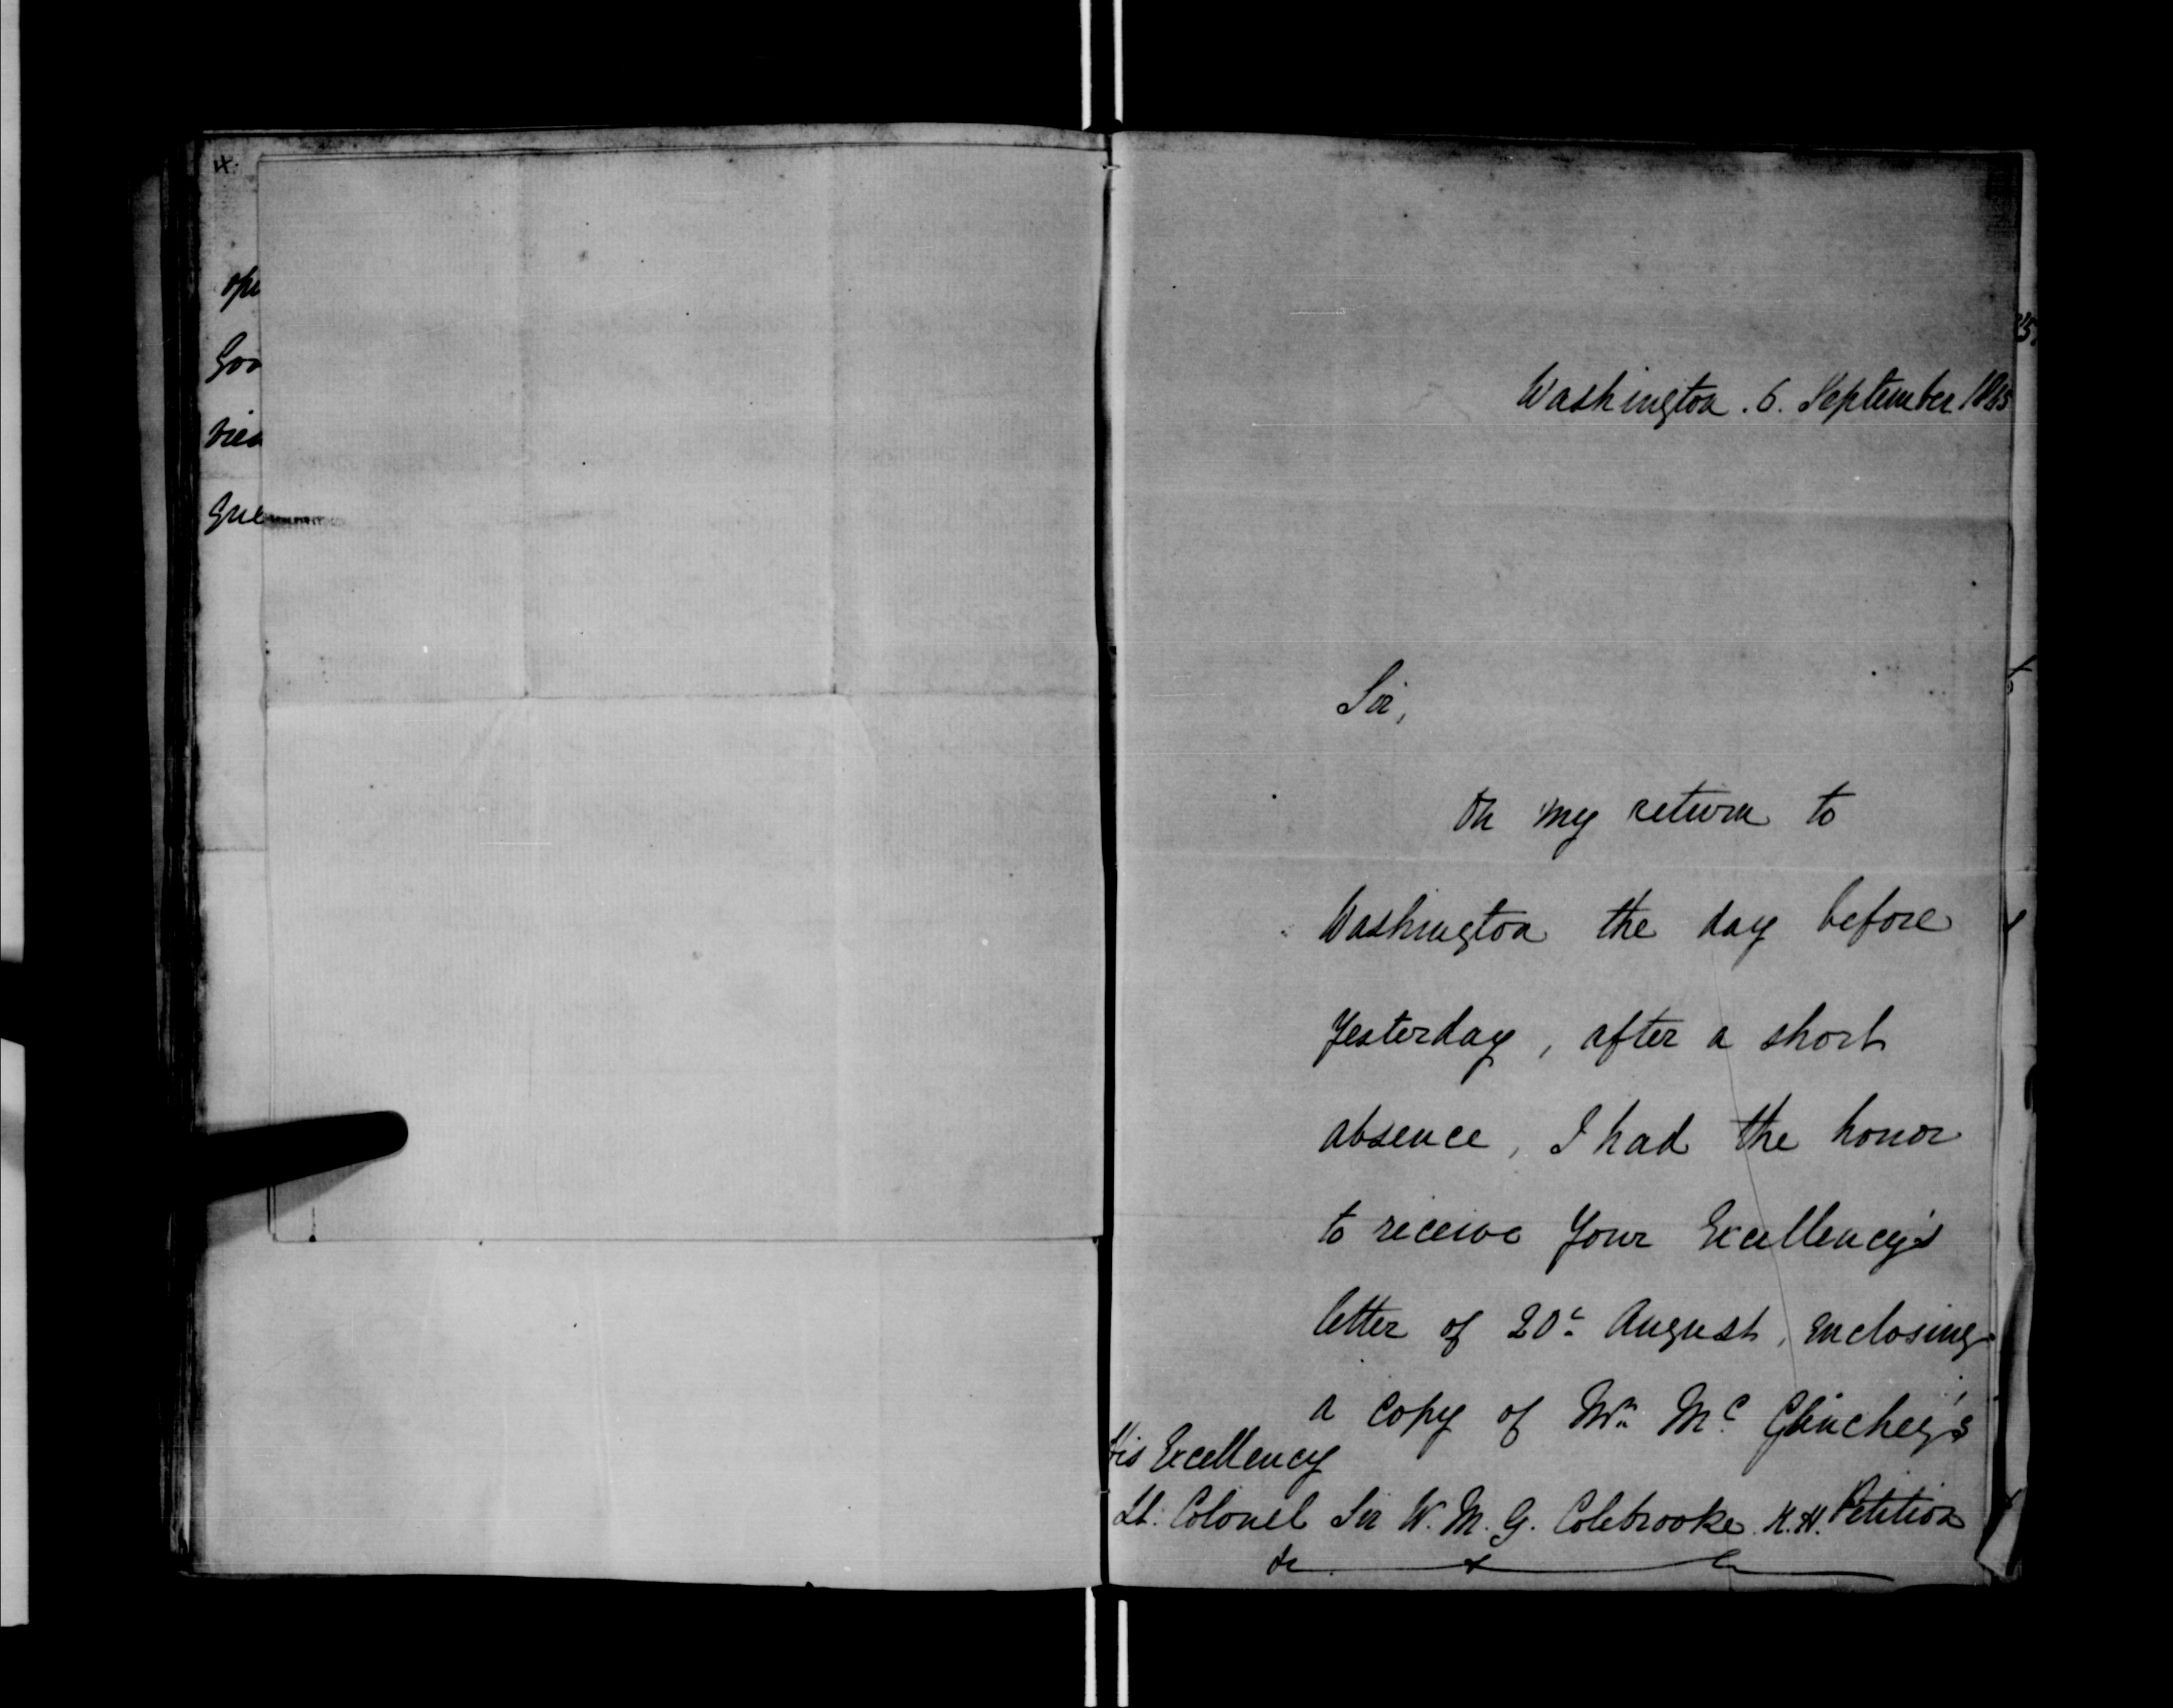 4.
Washington. 6. September 1845
Sir,
On my return to
Washington the day before
Yesterday, after a short
absence, I had the honor
to receive Your Excellency's
letter of 20th August, enclosing
a Copy of
His Excellency
Lt. Colonel Sir W. M. G. Colebrooke. K. H.
Petition